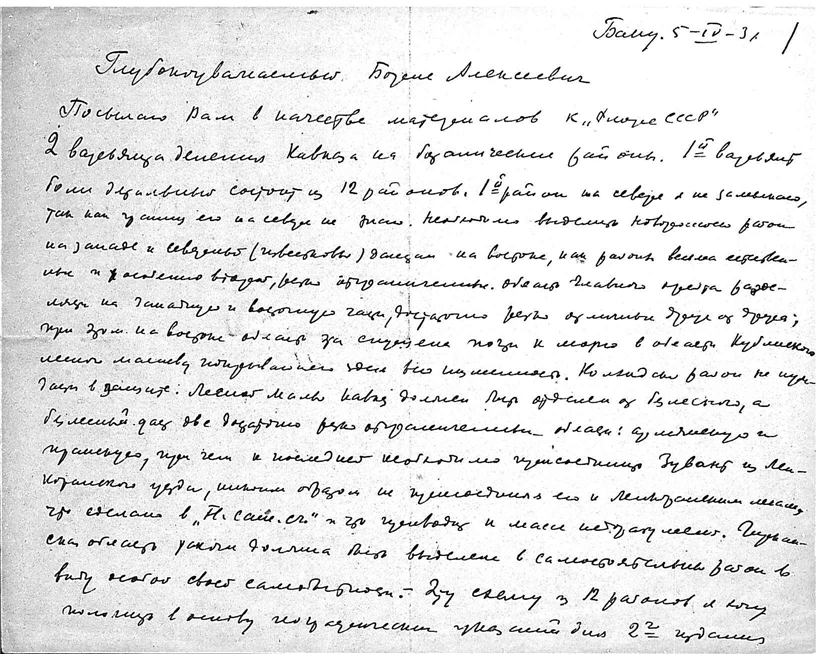 Баку. 5-IV-31
Глубокоуважаемый Борис Алексеевич
Посылаю Вам в качестве материалов к „Флоре СССР“
2 варьянта деления Кавказа на ботанические районы. 1й варьянт
более детальный состоит из 12 районов. 1й район на севере я не замыкаю,
так как границ его на севере не знаю. Необходимо выделить Новороссийск район
на западе и северный (известковый) Дагестан на востоке, как районы весьма естествен-
ные и особенно второй, резко отграниченные. Область Главного хребта разде-
ляю на западную и восточную части, достаточно резко отличные друг от друга;
при этом на востоке область эта спущена почти к морю в области Кубинского
лесного массива покрывающего здесь всю низменность. Колхидский район не нуж-
дается в защите. Лесной Малый Кавказ должен быть отделен от безлесного, а
безлесный дает две достаточно резко отграниченные области: армянскую и
иранскую, при чем к последней необходимо присоединить Зувант из Лен-
коранского уезда, никоим образом не присоединяя его к ленкоранским лесам,
что сделано в и что приводит к массе недоразумений. Гиркан-
ская область также должна быть выделена в самостоятельный район в
виду особой своей самобытности. – Эту схему из 12 районов я хочу
положить в основу географических указаний для 2го издания